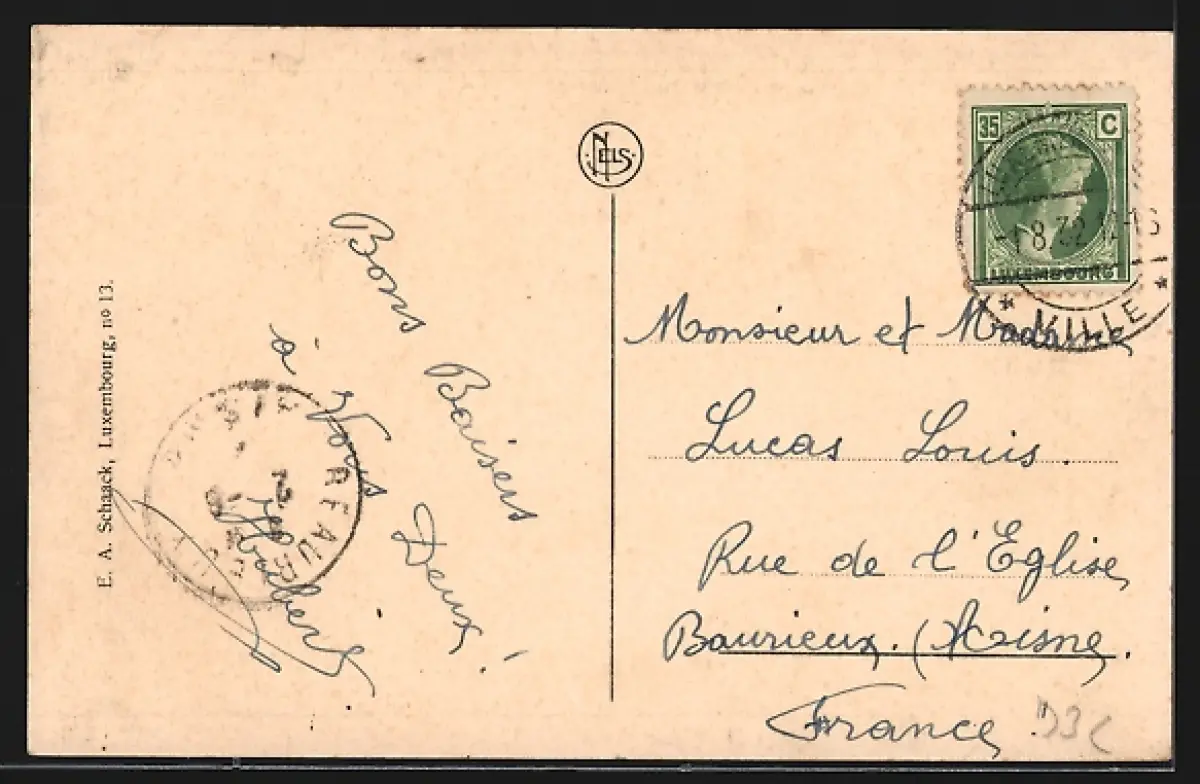 E. A. Schaack, Luxembourg, nº 13.
NELS
Bons Baisers
à Vous Deux!
35 C
LUXEMBOURG
-1.8.32
* VILLE *
Monsieur et Madame
Lucas Louis.
Rue de l'Eglise
Baurieux. (Aisne.
France